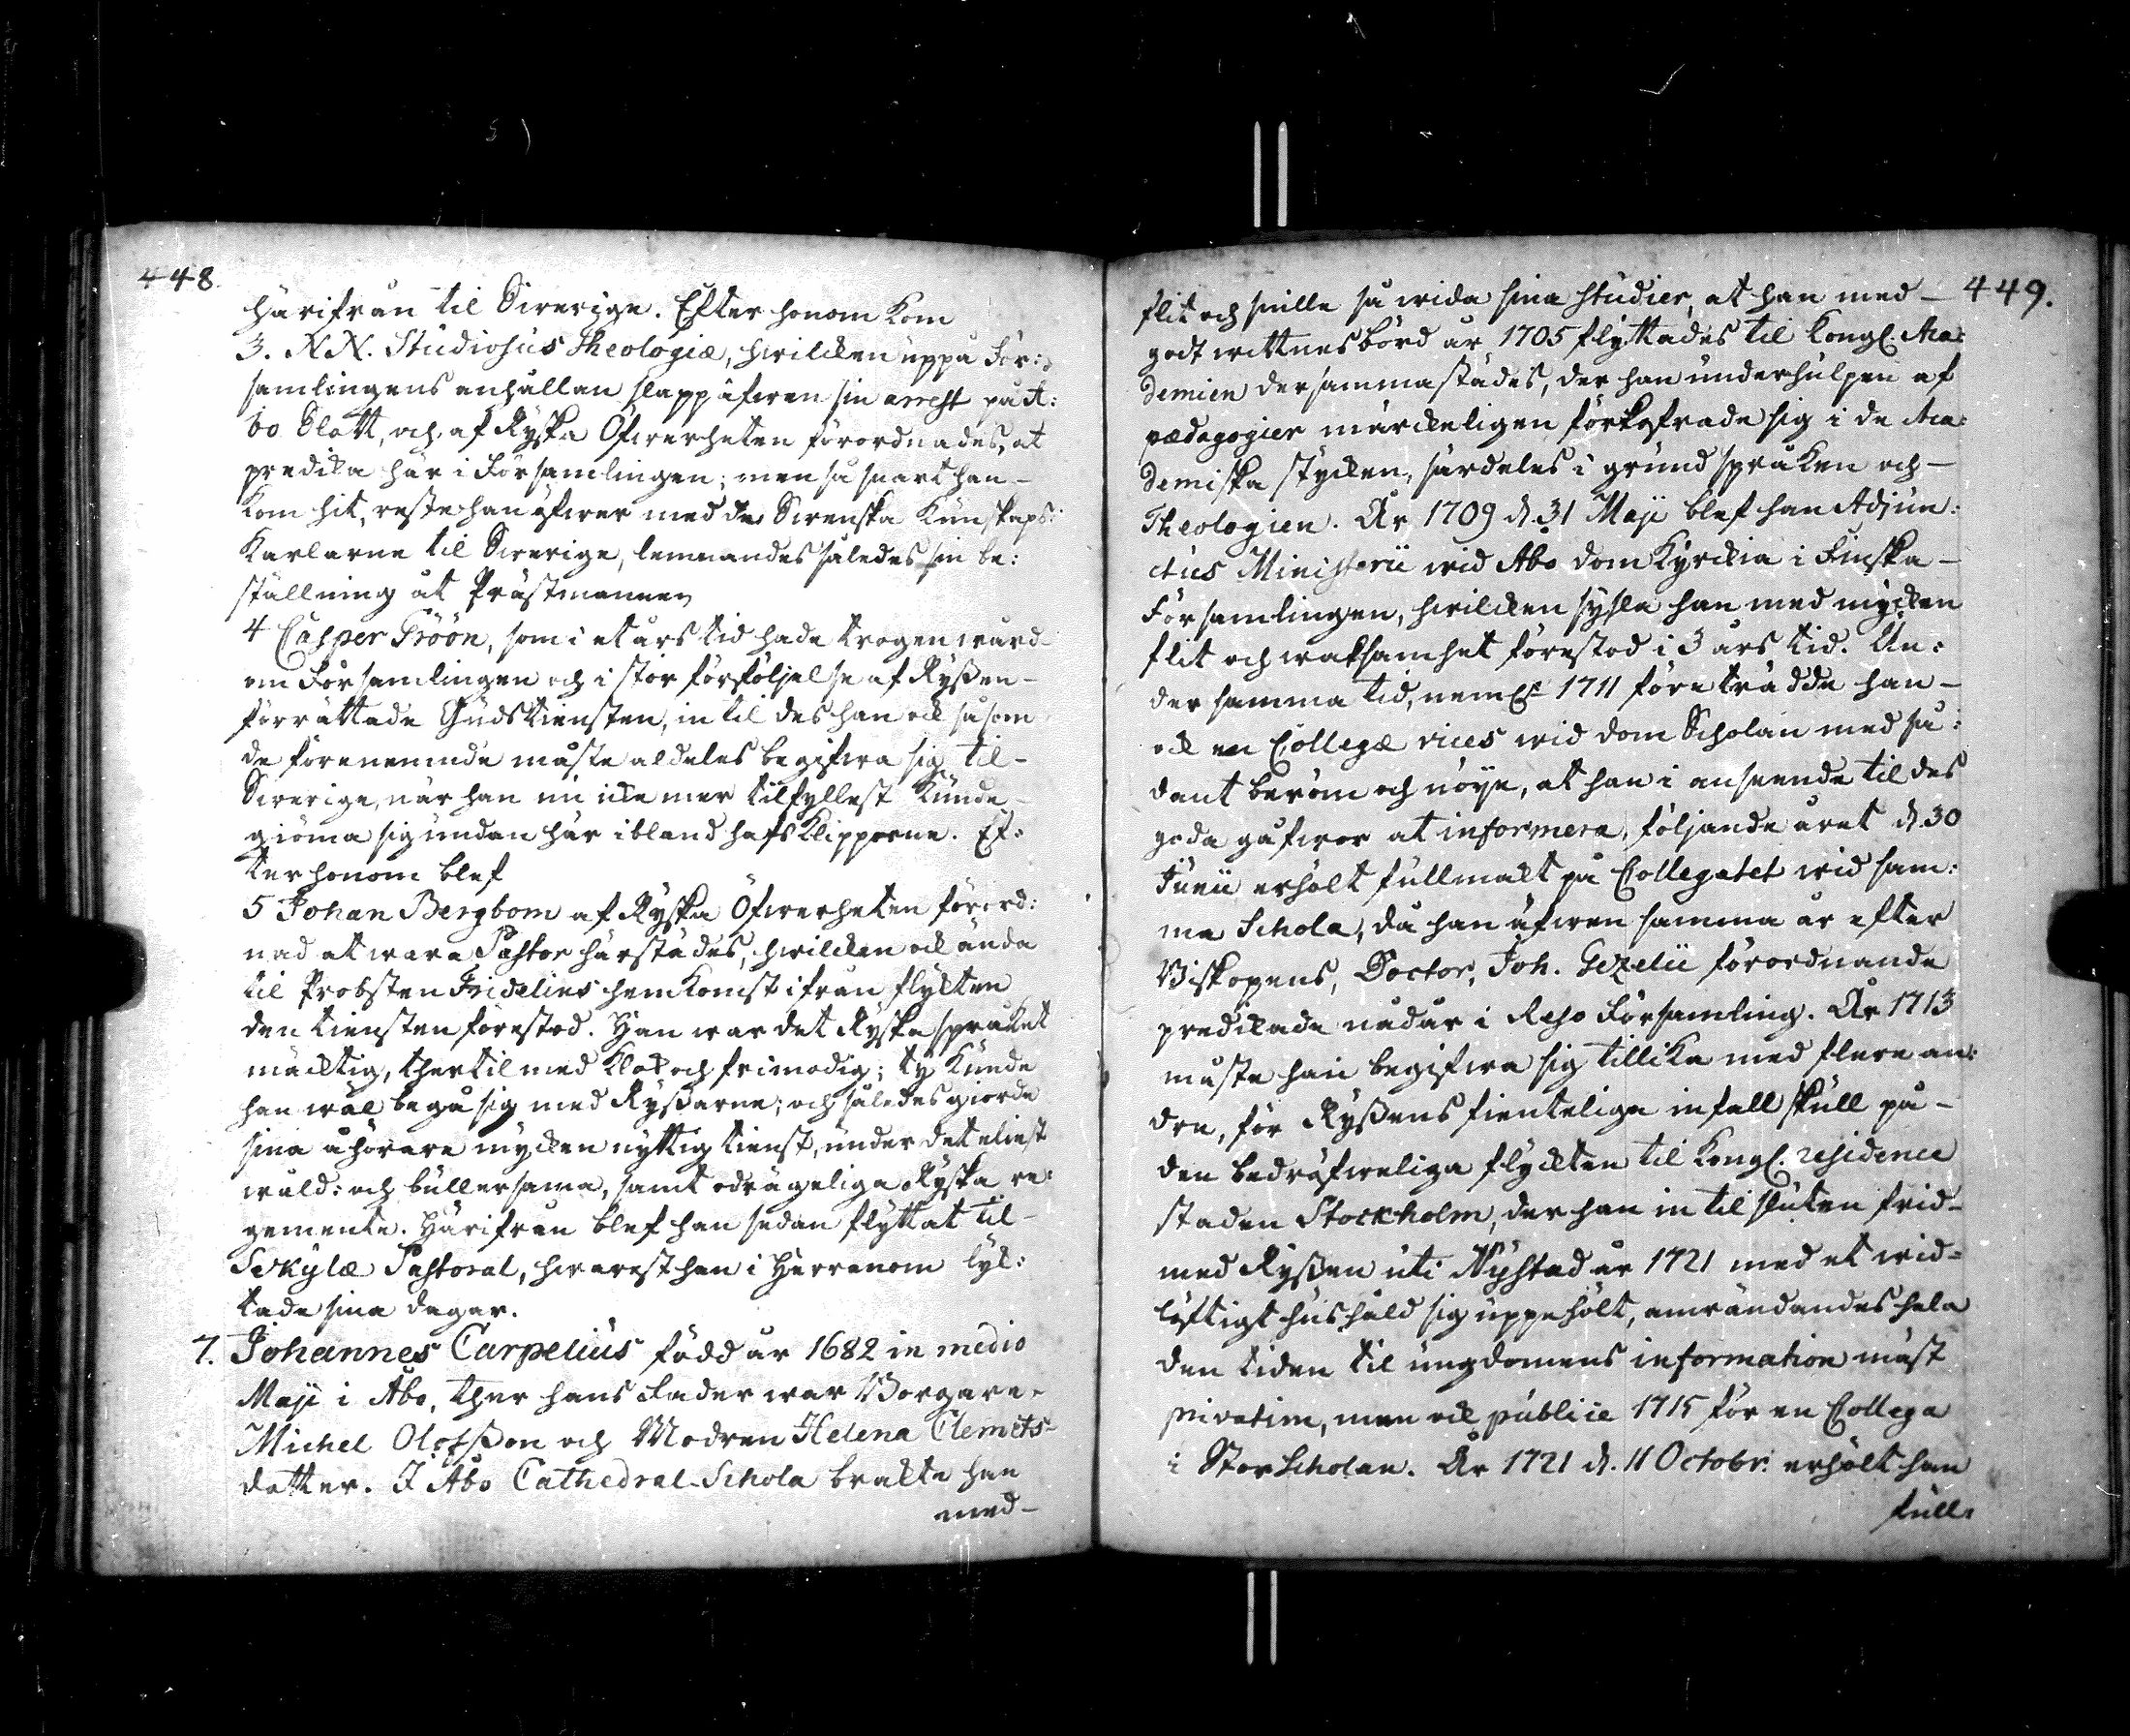 448.
härifrån til Swerige. Efter honom kom
3. N N. Studiosus Theologiæ, hwilcken uppå För:
samlingens anhållan slapp ifrån sin arrest på A:
bo Slått, och af Ryska Öfwerheten förordnades, at
predika här i Församlingen; men så snart han –
kom hit, reste han öfwer med de Swenska Kunskaps:
Karlarne til Swerige, lemnandes således sin be:
ställning åt Prästmannen
4 Casper Tröön, som i et års tid hade trogen wård
om Församlingen och i stor förföljelse af Ryßen –
förrättade Gudstiensten, in til des han ock såsom
de förenemnde måste aldeles begifwa sig til –
Swerige, när han nu icke mer tilfyllest kunde –
giöma sig undan här ibland hafs Klipporne. Ef:
ter honom blef
5 Johan Bergbom af Ryska Öfwerheten förord:
nad at wara Pastor härstädes, hwilcken ock ända
til Probsten Fridelins hemkomst ifrån flykten
den tiensten förestod. Han war det Ryska språket
mäcktig, thertil med klok och frimodig; ty kunde
han wäl begå sig med Ryßarne; och således giorde
sina åhörare mycken nyttig tienst, under det eliest
wåld: och bullersama, samt odrägeliga Ryska re:
gemente. Härifrån blef han sedan flyttat til –
Sckylæ Pastorat, hwarest han i Herranom lyk:
tade sina dagar.
7. Johannes Carpelius född år 1682 in medio
Maji i Åbo, ther hans Fader war Borgare
Michel Olofßon och Modren Helena Clemets-
dotter. I Åbo Cathedral-Schola brakte han
med –
449.
flit och snille så wida sina studier, at han med –
godt wittnesbörd år 1705 flyttades til Kongl. Aca:
demien dersammastädes, der han underhulpen af
pædagogier märckeligen förkofrade sig i de Aca:
demiska stycken, särdeles i grund språken och –
Theologien. År 1709 d. 31 Maji blef han Adjun:
ctus Ministerii wid Åbo Dom Kyrckia i Finska –
Församlingen, hwilcken sysla han med mycken
flit och waksamhet förestod i 3 års tid. Un:
der samma tid, neml. 1711 företrädde han –
ock en Collegæ vices wid Dom Scholan med så:
dant beröm och nöye, at han i anseende til des
goda gåfwor at informera, följande året d. 30
Junii erhölt fullmakt på Collegatet wid sam:
ma Schola, då han äfwen samma år efter
Biskopens, Doctor, Joh. Gezelii förordnande
predikade nådår i Reso Församling. År 1713
måste han begifwa sig tillika med flere an:
dra, för Ryßens fienteliga infall skull på –
den bedröfweliga flyckten til Kongl. residence
staden Stockholm, der han in til sluten frid –
med Ryßen uti Nystad år 1721 med et wid:
löftigt hushåld sig uppehölt, anwändandes hela
den tiden til ungdomens information mäst
privatim, men ock publice 1715 för en Collega
i StorScholan. År 1721 d. 11 Octobr. erhölt han
full: